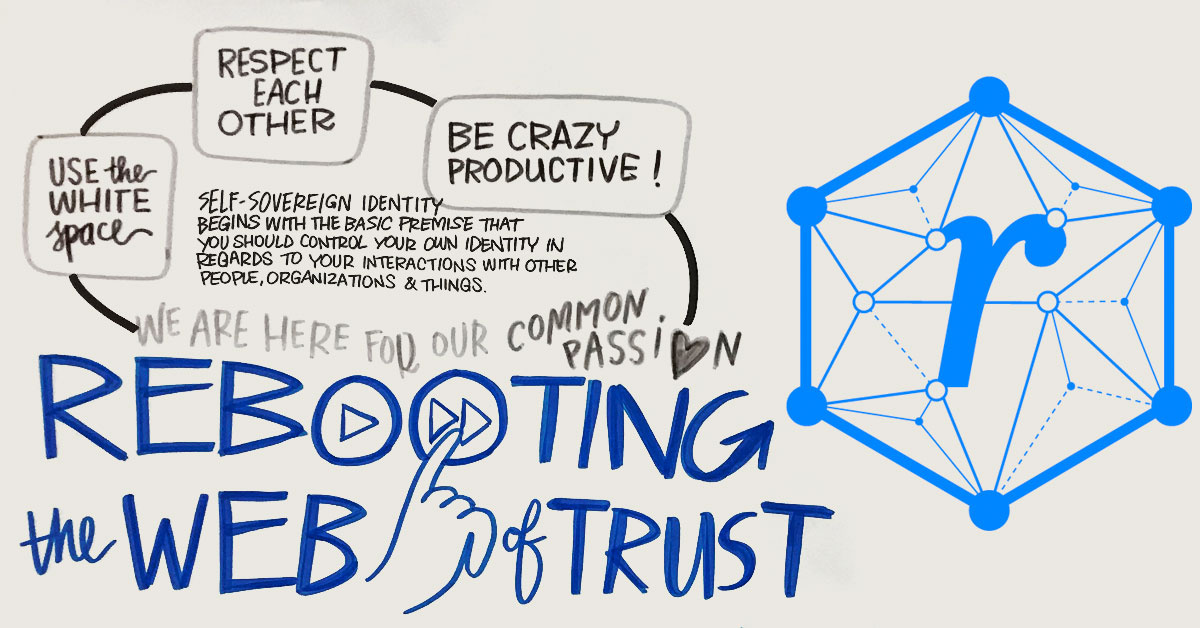 RESPECT
EACH
OTHER
BE CRAZY
PRODUCTIVE!
USE the
WHITE
space
SELF-SOVEREIGN IDENTITY
BEGINS WITH THE BASIC PREMISE THAT
YOU SHOULD CONTROL YOUR OWN IDENTITY IN
REGARDS TO YOUR INTERACTIONS WITH OTHER
PEOPLE, ORGANIZATIONS & THINGS.
WE ARE HERE FOR OUR COMMON
PASSION
REBOOTING
the WEB of TRUST
r